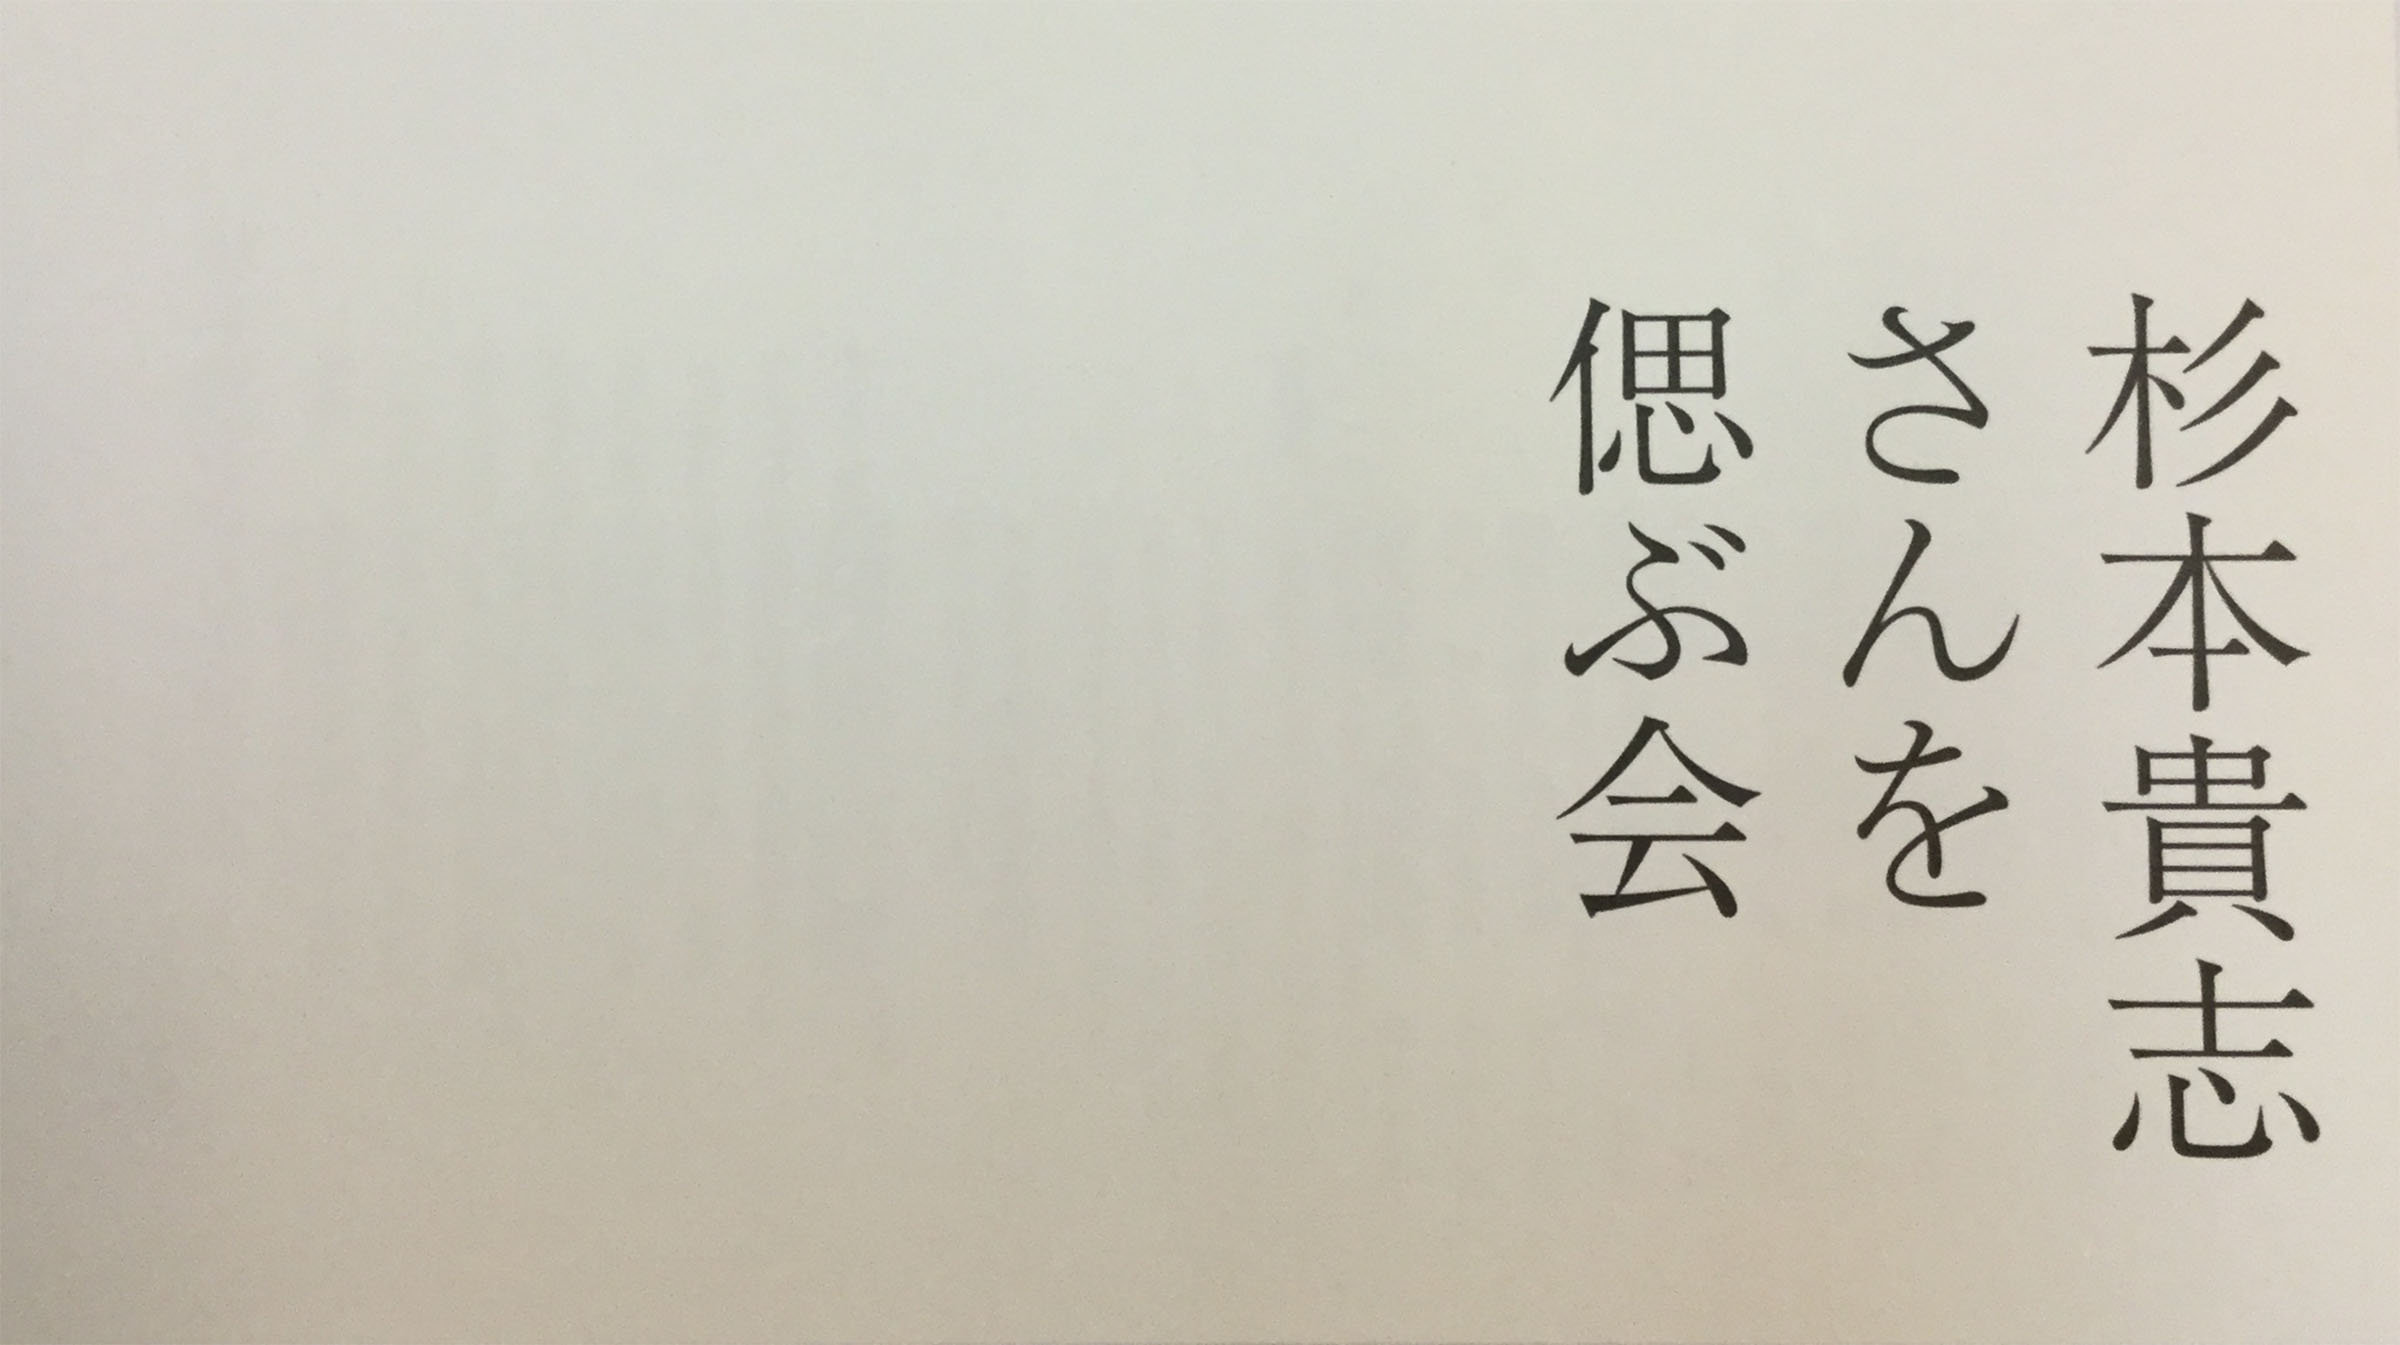 杉本貴志
さんを
偲ぶ会